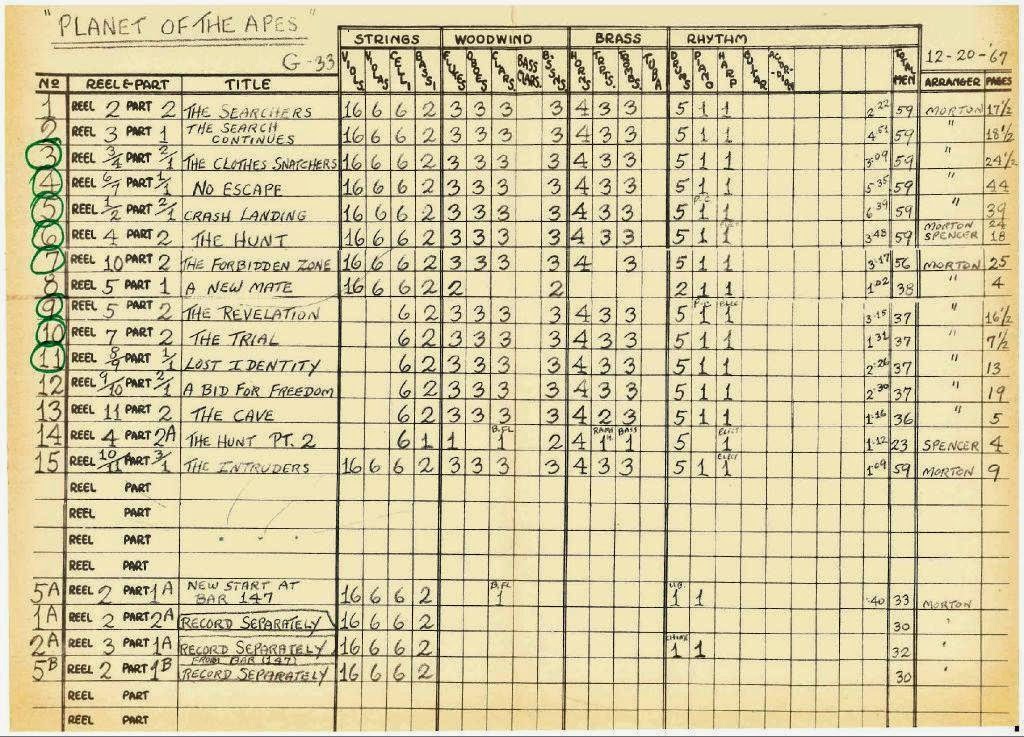 "PLANET OF THE APES"
G-33
12-20-'67
STRINGS WOODWIND BRASS RHYTHM
Nº REEL & PART TITLE VIOLS. VIOLAS CELLI BASSI FLUTES OBOES CLARS. BASS CLARS. BSSNS. HORNS TRPTS. TROMBS. TUBA DRUMS PIANO HARP GUITAR ACCORDIAN TOTAL MEN ARRANGER PAGES
1 REEL 2 PART 2 THE SEARCHERS 16 6 6 2 3 3 3 3 4 3 3 5 1 1 2:22 59 MORTON 17½
2 REEL 3 PART 1 THE SEARCH CONTINUES 16 6 6 2 3 3 3 3 4 3 3 5 1 1 4:51 59 " 18½
3 REEL 3/4 PART 2/1 THE CLOTHES SNATCHERS 16 6 6 2 3 3 3 3 4 3 3 5 1 1 3:09 59 " 24½
4 REEL 6/7 PART 1/1 NO ESCAPE 16 6 6 2 3 3 3 3 4 3 3 5 1 1 5:35 59 " 44
5 REEL 1/2 PART 2/1 CRASH LANDING 16 6 6 2 3 3 3 3 4 3 3 5 1 1 6:39 59 " 39
6 REEL 4 PART 2 THE HUNT 16 6 6 2 3 3 3 3 4 3 3 5 1 1 3:48 59 MORTON 24 SPENCER 18
7 REEL 10 PART 2 THE FORBIDDEN ZONE 16 6 6 2 3 3 3 3 4 3 5 1 1 3:17 56 MORTON 25
8 REEL 5 PART 1 A NEW MATE 16 6 6 2 2 2 2 1 1 1:02 38 " 4
9 REEL 5 PART 2 THE REVELATION 6 2 3 3 3 3 4 3 3 5 P.C 1 ELEC 1 3:15 37 " 16½
10 REEL 7 PART 2 THE TRIAL 6 2 3 3 3 3 4 3 3 5 1 1 1:31 37 " 7½
11 REEL 8/9 PART 1/1 LOST IDENTITY 6 2 3 3 3 3 4 3 3 5 1 1 2:26 37 " 13
12 REEL 9/10 PART 2/1 A BID FOR FREEDOM 6 2 3 3 3 3 4 3 3 5 1 1 2:30 37 " 19
13 REEL 11 PART 2 THE CAVE 6 2 3 3 3 3 4 2 3 5 1 1 1:16 36 " 5
14 REEL 4 PART 2A THE HUNT PT. 2 6 1 1 B.FL 1 2 4 1 BASS 1 5 ELEC 1 1:12 23 SPENCER 4
15 REEL 10/11 PART 3/1 THE INTRUDERS 16 6 6 2 3 3 3 3 4 3 3 5 1 ELEC 1 1:09 59 MORTON 9
REEL PART
REEL PART
REEL PART
REEL PART
5A REEL 2 PART 1A NEW START AT BAR 147 16 6 6 2 B.FL 1 1 1 :40 33 MORTON
1A REEL 2 PART 2A RECORD SEPARATELY 16 6 6 2 30 "
2A REEL 3 PART 1A RECORD SEPARATELY 16 6 6 2 1 1 32 "
5B REEL 2 PART 1B FROM BAR (147) RECORD SEPARATELY 16 6 6 2 30
REEL PART
REEL PART